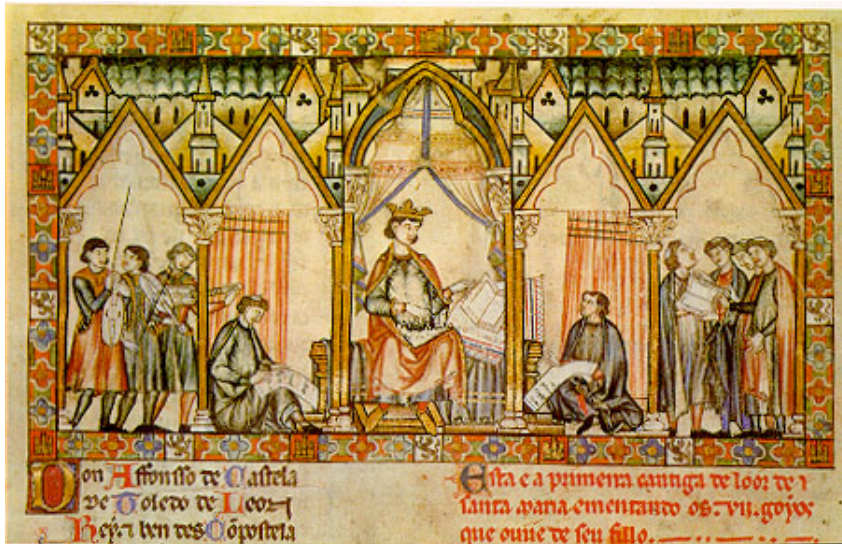 Don Affonsso de Castela
de Toledo de Leon ⁊
Rey. ⁊ ben des Cõpostela
Esta e a primeira cantiga de loor de
santa maria ementando os .vii. goyos
que ouue de seu fillo.